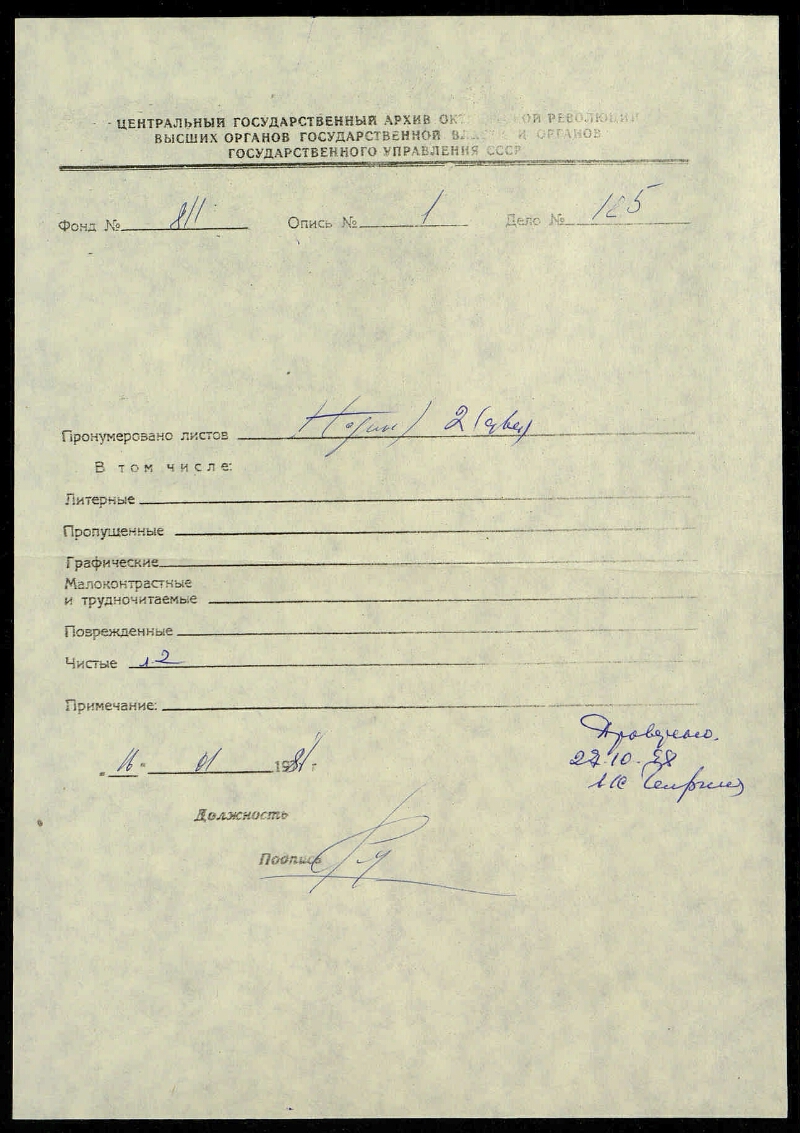 ЦЕНТРАЛЬНЫЙ ГОСУДАРСТВЕННЫЙ АРХИВ ОК ОЙ РЕВОЛЮЦИИ
ВЫСШИХ ОРГАНОВ ГОСУДАРСТВЕННОЙ В И ОРГАНОВ
ГОСУДАРСТВЕННОГО УПРАВЛЕНИЯ СССР
Фонд № 811 Опись № 1 Дело № 125
Пронумеровано листов 2 (два)
В том числе:
Литерные
Пропущенные
Графические
Малоконтрастные
и трудночитаемые
Поврежденные
Чистые 1-2
Примечание:
"16" 01 198 г.
Должность
Подпись